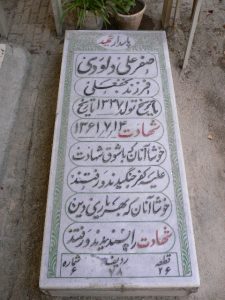 پاسدار شهید
صفر علی داودی
فرزند نجفعلی
تاریخ تولد ۱۳۳۷ تاریخ
شهادت ۱۳۶۱/۷/۱۳
خوشا آنان که با شوق شهادت
علیه کفر جنگیدند و رفتند
خوشا آنان که بهر یاری دین
شهادت را پسندیدند و رفتند
قطعه ردیف شماره
۲۶ ۷۸ ۶